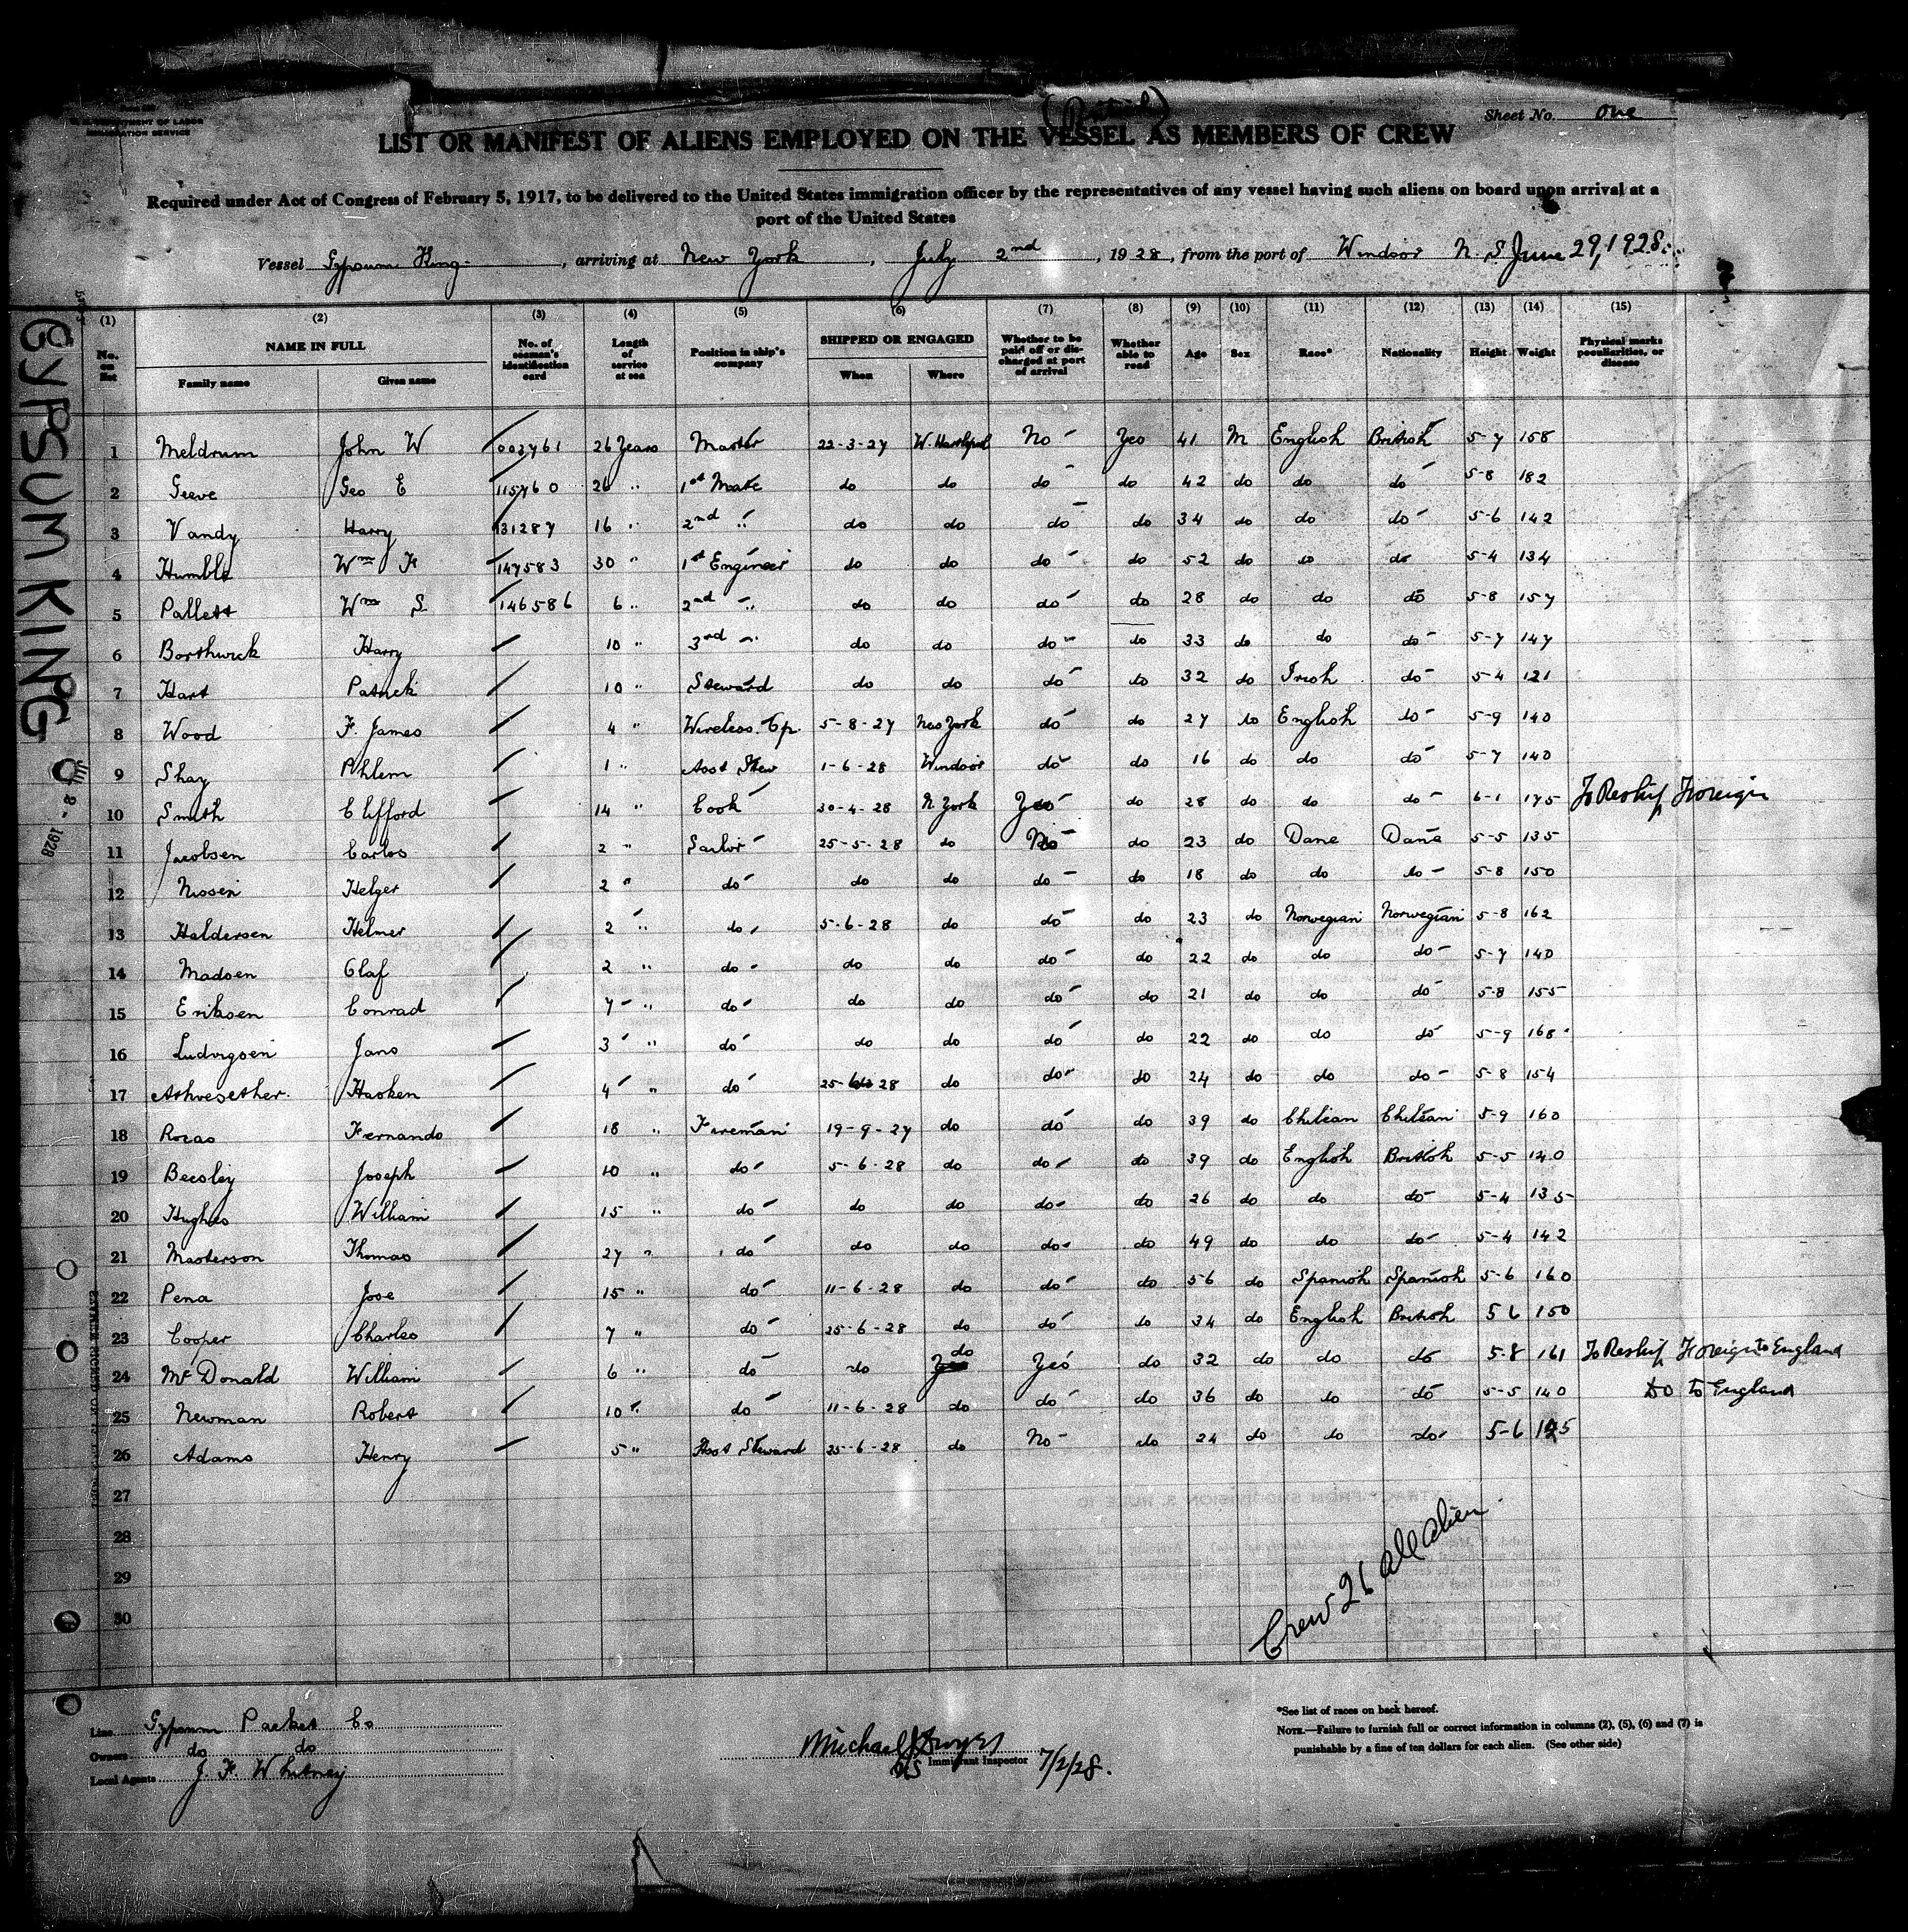 Form 689
U. S. DEPARTMENT OF LABOR
IMMIGRATION SERVICE
(British)
Sheet No. one
LIST OR MANIFEST OF ALIENS EMPLOYED ON THE VESSEL AS MEMBERS OF CREW
Required under Act of Congress of February 5, 1917, to be delivered to the United States immigration officer by the representatives of any vessel having such aliens on board upon arrival at a
port of the United States
Vessel Gypsum King, arriving at New York, July 2nd, 1928, from the port of Windsor N.S June 29, 1928
GYPSUM KING
(1) (2) (3) (4) (5) (6) (7) (8) (9) (10) (11) (12) (13) (14) (15)
No. on list NAME IN FULL Family name Given name No. of seaman's identification card Length of service at sea Position in ship's company SHIPPED OR ENGAGED When Where Whether to be paid off or discharged at port of arrival Whether able to read Age Sex Race* Nationality Height Weight Physical marks, peculiarities, or disease
1 Meldrum John W 003761 26 Years Master 22-3-27 W. Hartlepool No Yes 41 M English British 5-7 158
2 Geeve Geo E 115760 26 " 1st Mate do do do do 42 do do do 5-8 182
3 Vandy Harry 31287 16 " 2nd " do do do do 34 do do do 5-6 142
4 Humble Wm F 147583 30 " 1st Engineer do do do do 52 do do do 5-4 134
5 Pallett Wm S 146586 6 " 2nd " do do do do 28 do do do 5-8 157
6 Borthwick Harry 10 " 3rd " do do do do 33 do do do 5-7 147
7 Hart Patrick 10 " Steward do do do do 32 do Irish do 5-4 121
8 Wood F. James 4 " Wireless Op. 5-8-27 New York do do 27 do English do 5-9 140
9 Shay Phlem 1 " Asst Stew 1-6-28 Windsor do do 16 do do do 5-7 140
10 Smith Clifford 14 " Cook 30-4-28 N York Yes do 28 do do do 6-1 175 To Reship Foreign
11 Jacobsen Carlos 2 " Sailor 25-5-28 do No do 23 do Dane Dane 5-5 135
12 Nissen Helger 2 " do do do do do 18 do do do 5-8 150
13 Haldersen Helmer 2 " do 5-6-28 do do do 23 do Norwegian Norwegian 5-8 162
14 Madsen Olaf 2 " do do do do do 22 do do do 5-7 140
15 Eriksen Conrad 7 " do do do do do 21 do do do 5-8 155
16 Ludvigsen Jans 3 " do do do do do 22 do do do 5-9 168
17 Ashvesether Haoken 4 " do 25-28 do do do 24 do do do 5-8 154
18 Rozas Fernando 18 " Fireman 19-9-27 do do do 39 do Chilean Chilean 5-9 160
19 Beesley Joseph 10 " do 5-6-28 do do do 39 do English British 5-5 140
20 Hughes William 15 " do do do do do 26 do do do 5-4 135
21 Masterson Thomas 27 " do do do do do 49 do do do 5-4 142
22 Pena Jose 15 " do 11-6-28 do do do 56 do Spanish Spanish 5-6 160
23 Cooper Charles 7 " do 25-6-28 do do do 34 do English British 5 6 150
24 McDonald William 6 " do do do Yes do 32 do do do 5-8 161 To Reship Foreign to England
25 Newman Robert 10 " do 11-6-28 do do do 36 do do do 5-5 140 Do to England
26 Adams Henry 5 " Asst Steward 25-6-28 do No do 24 do do do 5-6
27
28
29
30
Crew 26 all alien
Line Gypsum Packet Co
Owners do do
Local Agents J F Whitney
Michael J Dwyer
Immigrant Inspector 7/2/28.
*See list of races on back hereof.
NOTE.—Failure to furnish full or correct information in columns (2), (5), (6) and (7) is
punishable by a fine of ten dollars for each alien. (See other side)